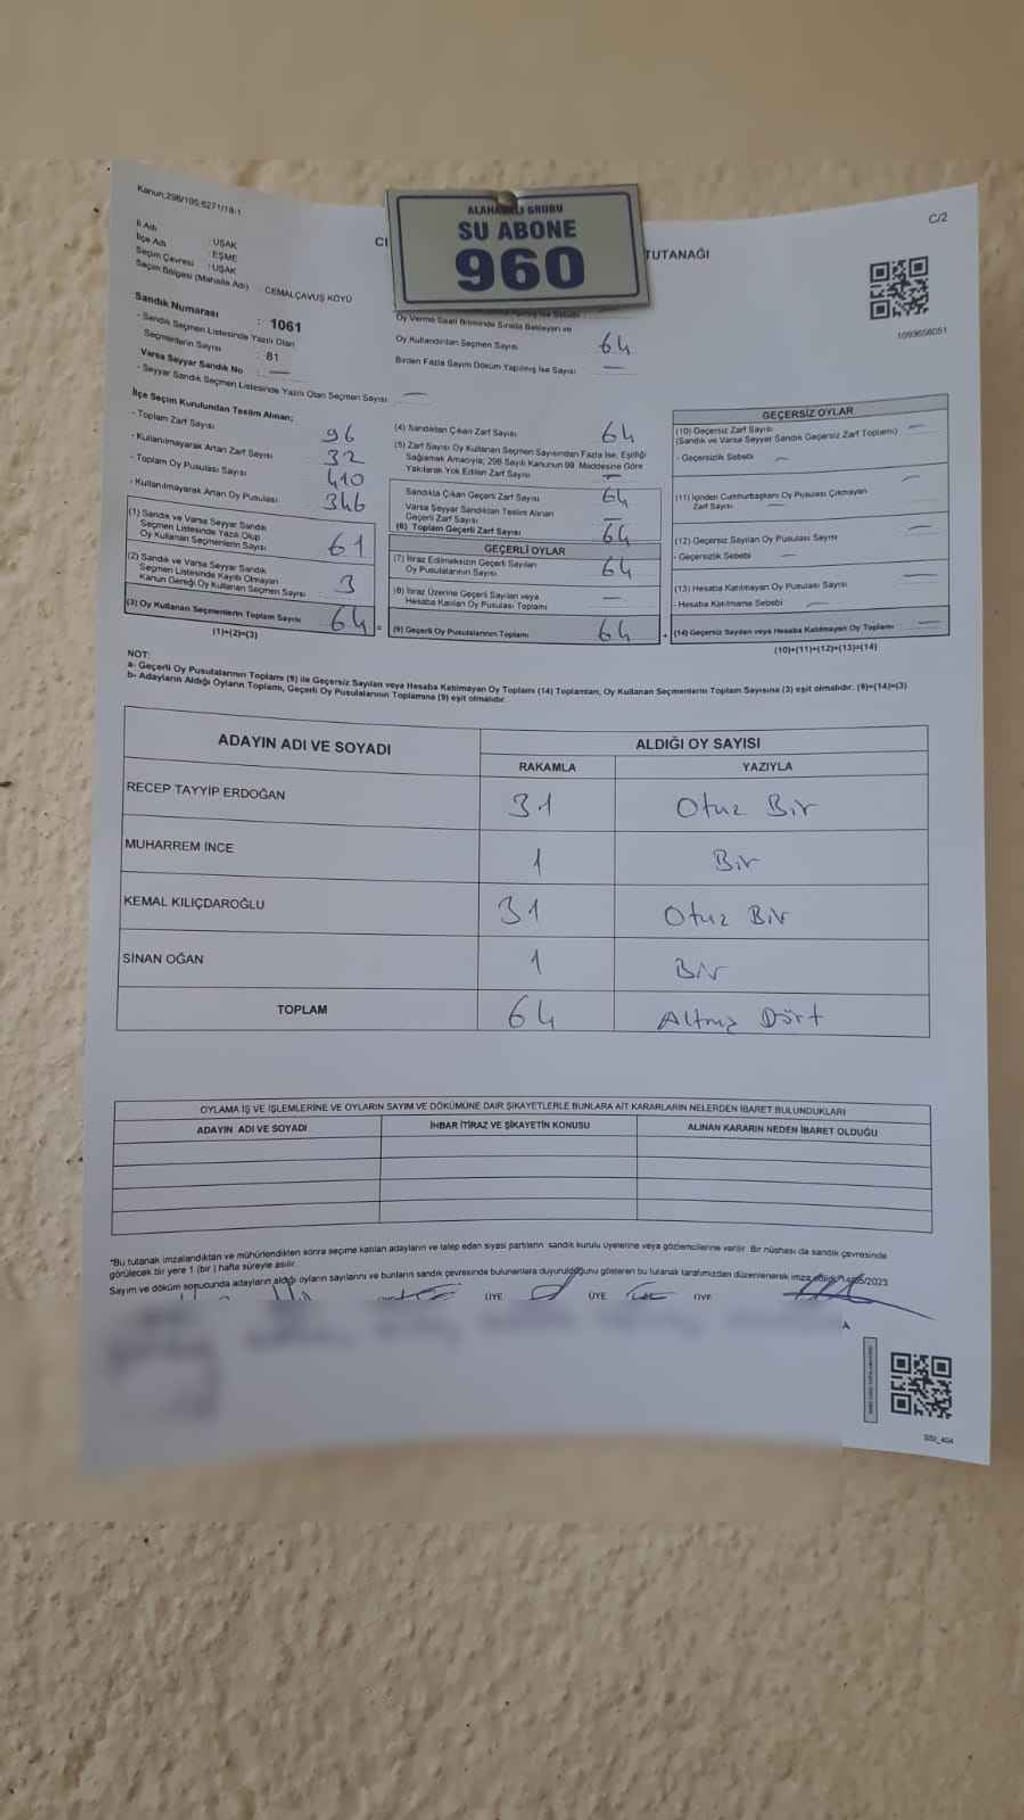 Kanun:298/105;6271/18-1
C/2
ALAHABALI GRUBU
SU ABONE
960
TUTANAĞI
İl Adı : UŞAK
İlçe Adı : EŞME
Seçim Çevresi : UŞAK
Seçim Bölgesi (Mahalle Adı) : CEMALÇAVUŞ KÖYÜ
Sandık Numarası : 1061
- Sandık Seçmen Listesinde Yazılı Olan
Seçmenlerin Sayısı : 81
Varsa Seyyar Sandık No : —
- Seyyar Sandık Seçmen Listesinde Yazılı Olan Seçmen Sayısı: —
Oy Verme Saati Bitiminde Sırada Bekleyen ve
Oy Kullandırılan Seçmen Sayısı 64
Birden Fazla Sayım Döküm Yapılmış İse Sayısı —
1099658051
İlçe Seçim Kurulundan Teslim Alınan;
- Toplam Zarf Sayısı 96
- Kullanılmayarak Artan Zarf Sayısı 32
- Toplam Oy Pusulası Sayısı 410
- Kullanılmayarak Artan Oy Pusulası 346
(1) Sandık ve Varsa Seyyar Sandık
Seçmen Listesinde Yazılı Olup
Oy Kullanan Seçmenlerin Sayısı 61
(2) Sandık ve Varsa Seyyar Sandık
Seçmen Listesinde Kayıtlı Olmayan
Kanun Gereği Oy Kullanan Seçmen Sayısı 3
(3) Oy Kullanan Seçmenlerin Toplam Sayısı 64 =
(1)+(2)=(3)
(4) Sandıktan Çıkan Zarf Sayısı 64
(5) Zarf Sayısı Oy Kullanan Seçmen Sayısından Fazla İse, Eşitliği
Sağlamak Amacıyla; 298 Sayılı Kanunun 99. Maddesine Göre
Yakılarak Yok Edilen Zarf Sayısı —
Sandıkta Çıkan Geçerli Zarf Sayısı 64
Varsa Seyyar Sandıktan Teslim Alınan
Geçerli Zarf Sayısı —
(6) Toplam Geçerli Zarf Sayısı 64
GEÇERLİ OYLAR
(7) İtiraz Edilmeksizin Geçerli Sayılan
Oy Pusulalarının Sayısı 64
(8) İtiraz Üzerine Geçerli Sayılan veya
Hesaba Katılan Oy Pusulası Toplamı —
(9) Geçerli Oy Pusulalarının Toplamı 64 +
GEÇERSİZ OYLAR
(10) Geçersiz Zarf Sayısı
(Sandık ve Varsa Seyyar Sandık Geçersiz Zarf Toplamı) —
- Geçersizlik Sebebi —
(11) İçinden Cumhurbaşkanı Oy Pusulası Çıkmayan
Zarf Sayısı —
(12) Geçersiz Sayılan Oy Pusulası Sayısı —
- Geçersizlik Sebebi —
(13) Hesaba Katılmayan Oy Pusulası Sayısı —
- Hesaba Katılmama Sebebi —
(14) Geçersiz Sayılan veya Hesaba Katılmayan Oy Toplamı —
(10)+(11)+(12)+(13)=(14)
NOT:
a- Geçerli Oy Pusulalarının Toplamı (9) ile Geçersiz Sayılan veya Hesaba Katılmayan Oy Toplamı (14) Toplamları, Oy Kullanan Seçmenlerin Toplam Sayısına (3) eşit olmalıdır. (9)+(14)=(3)
b- Adayların Aldığı Oyların Toplamı, Geçerli Oy Pusulalarının Toplamına (9) eşit olmalıdır.
ADAYIN ADI VE SOYADI ALDIĞI OY SAYISI
RAKAMLA YAZIYLA
RECEP TAYYİP ERDOĞAN 31 Otuz Bir
MUHARREM İNCE 1 Bir
KEMAL KILIÇDAROĞLU 31 Otuz Bir
SİNAN OĞAN 1 Bir
TOPLAM 64 Altmış Dört
OYLAMA İŞ VE İŞLEMLERİNE VE OYLARIN SAYIM VE DÖKÜMÜNE DAİR ŞİKAYETLERLE BUNLARA AİT KARARLARIN NELERDEN İBARET BULUNDUKLARI
ADAYIN ADI VE SOYADI İHBAR İTİRAZ VE ŞİKAYETİN KONUSU ALINAN KARARIN NEDEN İBARET OLDUĞU
*Bu tutanak imzalandıktan ve mühürlendikten sonra seçime katılan adayların ve talep eden siyasi partilerin sandık kurulu üyelerine veya gözlemcilerine verilir. Bir nüshası da sandık çevresinde
görülecek bir yere 1 (bir ) hafta süreyle asılır.
Sayım ve döküm sonucunda adayların aldığı oyların sayılarını ve bunların sandık çevresinde bulunanlara duyurulduğunu gösteren bu tutanak tarafımızdan düzenlenerek imza edildi. 14/05/2023
ÜYE ÜYE ÜYE